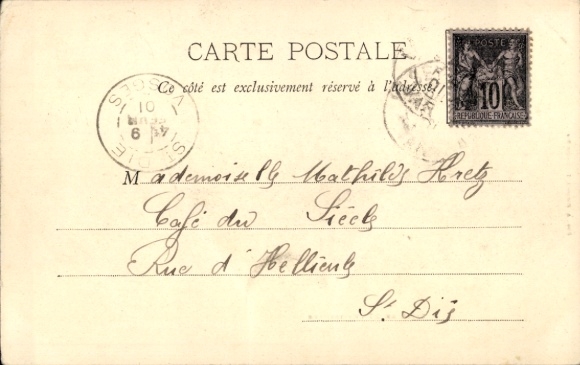 CARTE POSTALE
Ce côté est exclusivement réservé à l'adresse
POSTE
10
REPUBLIQUE FRANÇAISE
ST DIE VOSGES
9
01
Mademoiselle Mathilde Hretz
Café du Siècle
Rue d'Hellieule
St Dié